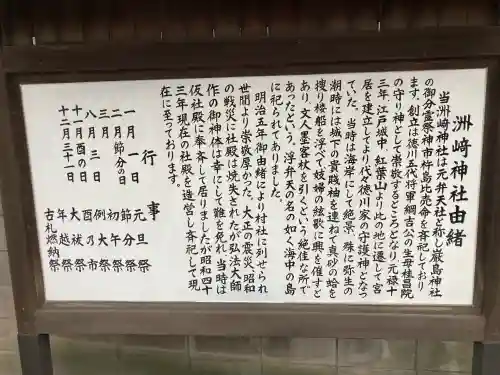 洲崎神社由緒
当洲崎神社は元弁天社と称し厳島神社
の御分霊祭神市杵島比売命を斉祀しており
ます。創立は徳川五代将軍綱吉公の生母桂昌院
の守り神として崇敬するところとなり、元禄十
三年、江戸城中、紅葉山より此の地に遷して宮
居を建立してより代々徳川家の守護神となっ
ていた。当時は海岸にして絶景、殊に弥生の
潮時には城下の貴賤袖を連ねて真砂の蛤を
捜り楼船を浮べて妓婦の絃歌に興を催すと
あり、文人墨客杖を引くという絶佳な所で
あったという。浮弁天の名の如く海中の島
に祀られてありました。
明治五年御由緒により村社に列せられ
世間より崇敬厚かった。大正の震災、昭和
の戦災に社殿は焼失されたが弘法大師
作の御神体は幸にして難を免れ、当時は
仮社殿に奉斉して居りましたが昭和四十
三年現在の社殿を造営し斉祀して現
在に至っております。
行事
一月一日 元旦祭
二月節分の日 節分祭
二月 初午祭
八月三日 例大祭
十一月酉の日 酉の市
十二月三十一日 大祓祭
年越祭
古札燃納祭